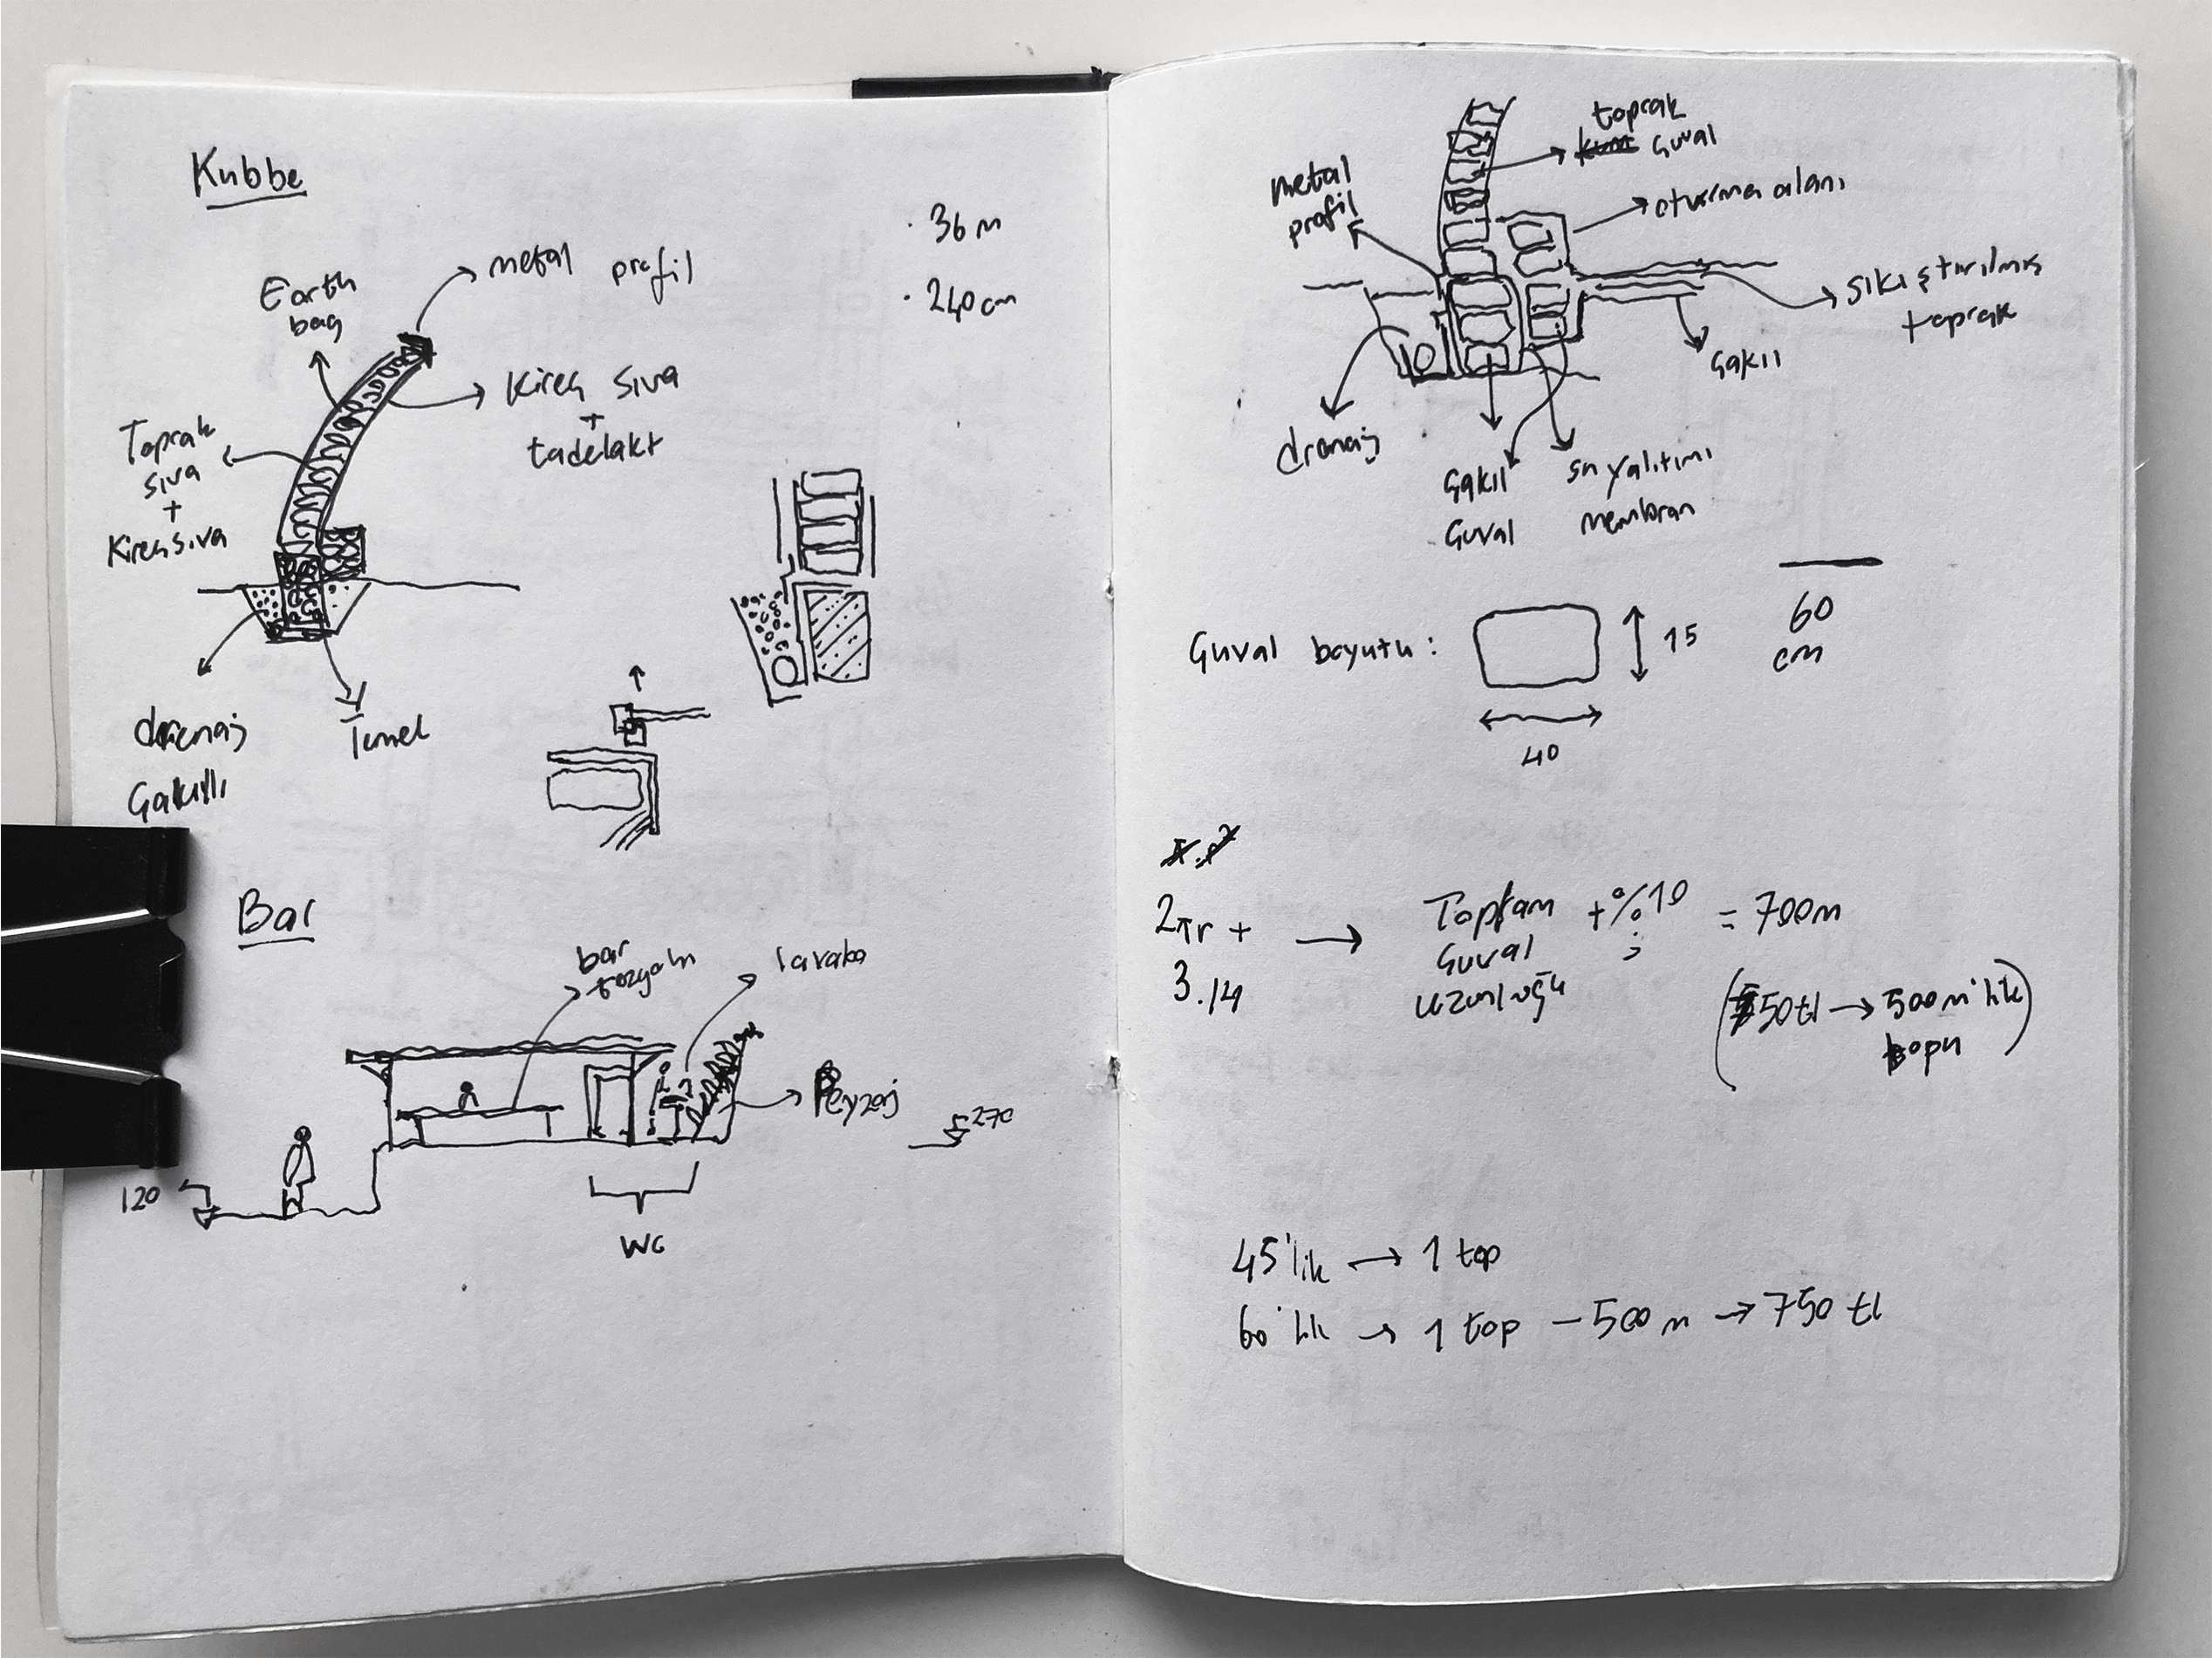 Kubbe
· 36 m
· 240 cm
Earth
bag
metal profil
Kireç sıva
+
tadelakt
Toprak
sıva
+
Kireç sıva
drenaj
Çakıllı
Temel
Bar
bar
tezgahı
lavabo
Peyzaj
270
120
WC
toprak
kum çuval
metal
profil
oturma alanı
sıkıştırılmış
toprak
çakıl
drenaj
çakıl
çuval
su yalıtımı
membran
Çuval boyutu :
15
40
60
cm
π.r²
2πr +
3.14
→
Toplam +%10 = 700m
çuval ;
uzunluğu
50tl → 500m'lik
topu
45'lik → 1 top
60'lık → 1 top – 500 m → 750 tl